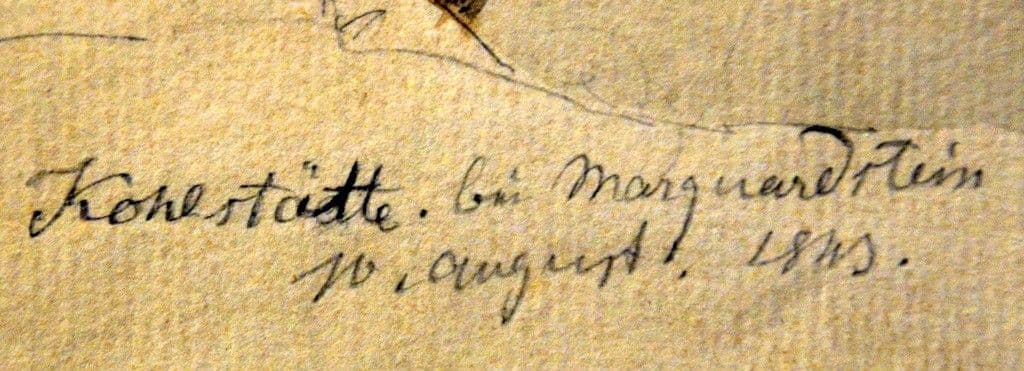 Kohlstätte. bei Marquardstein
10. August. 1843.